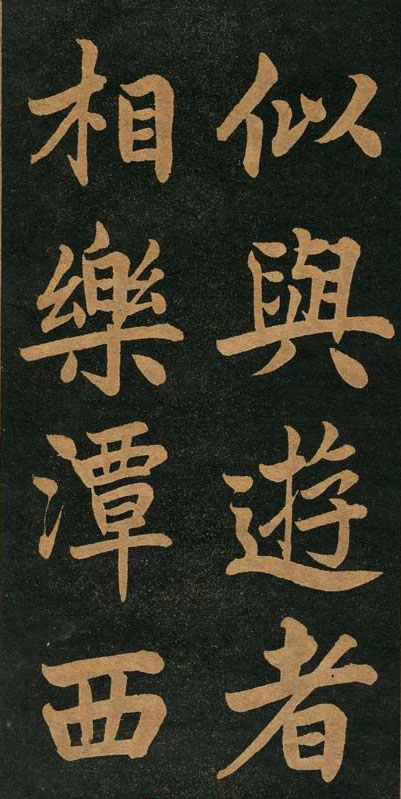 似與遊者
相樂潭西